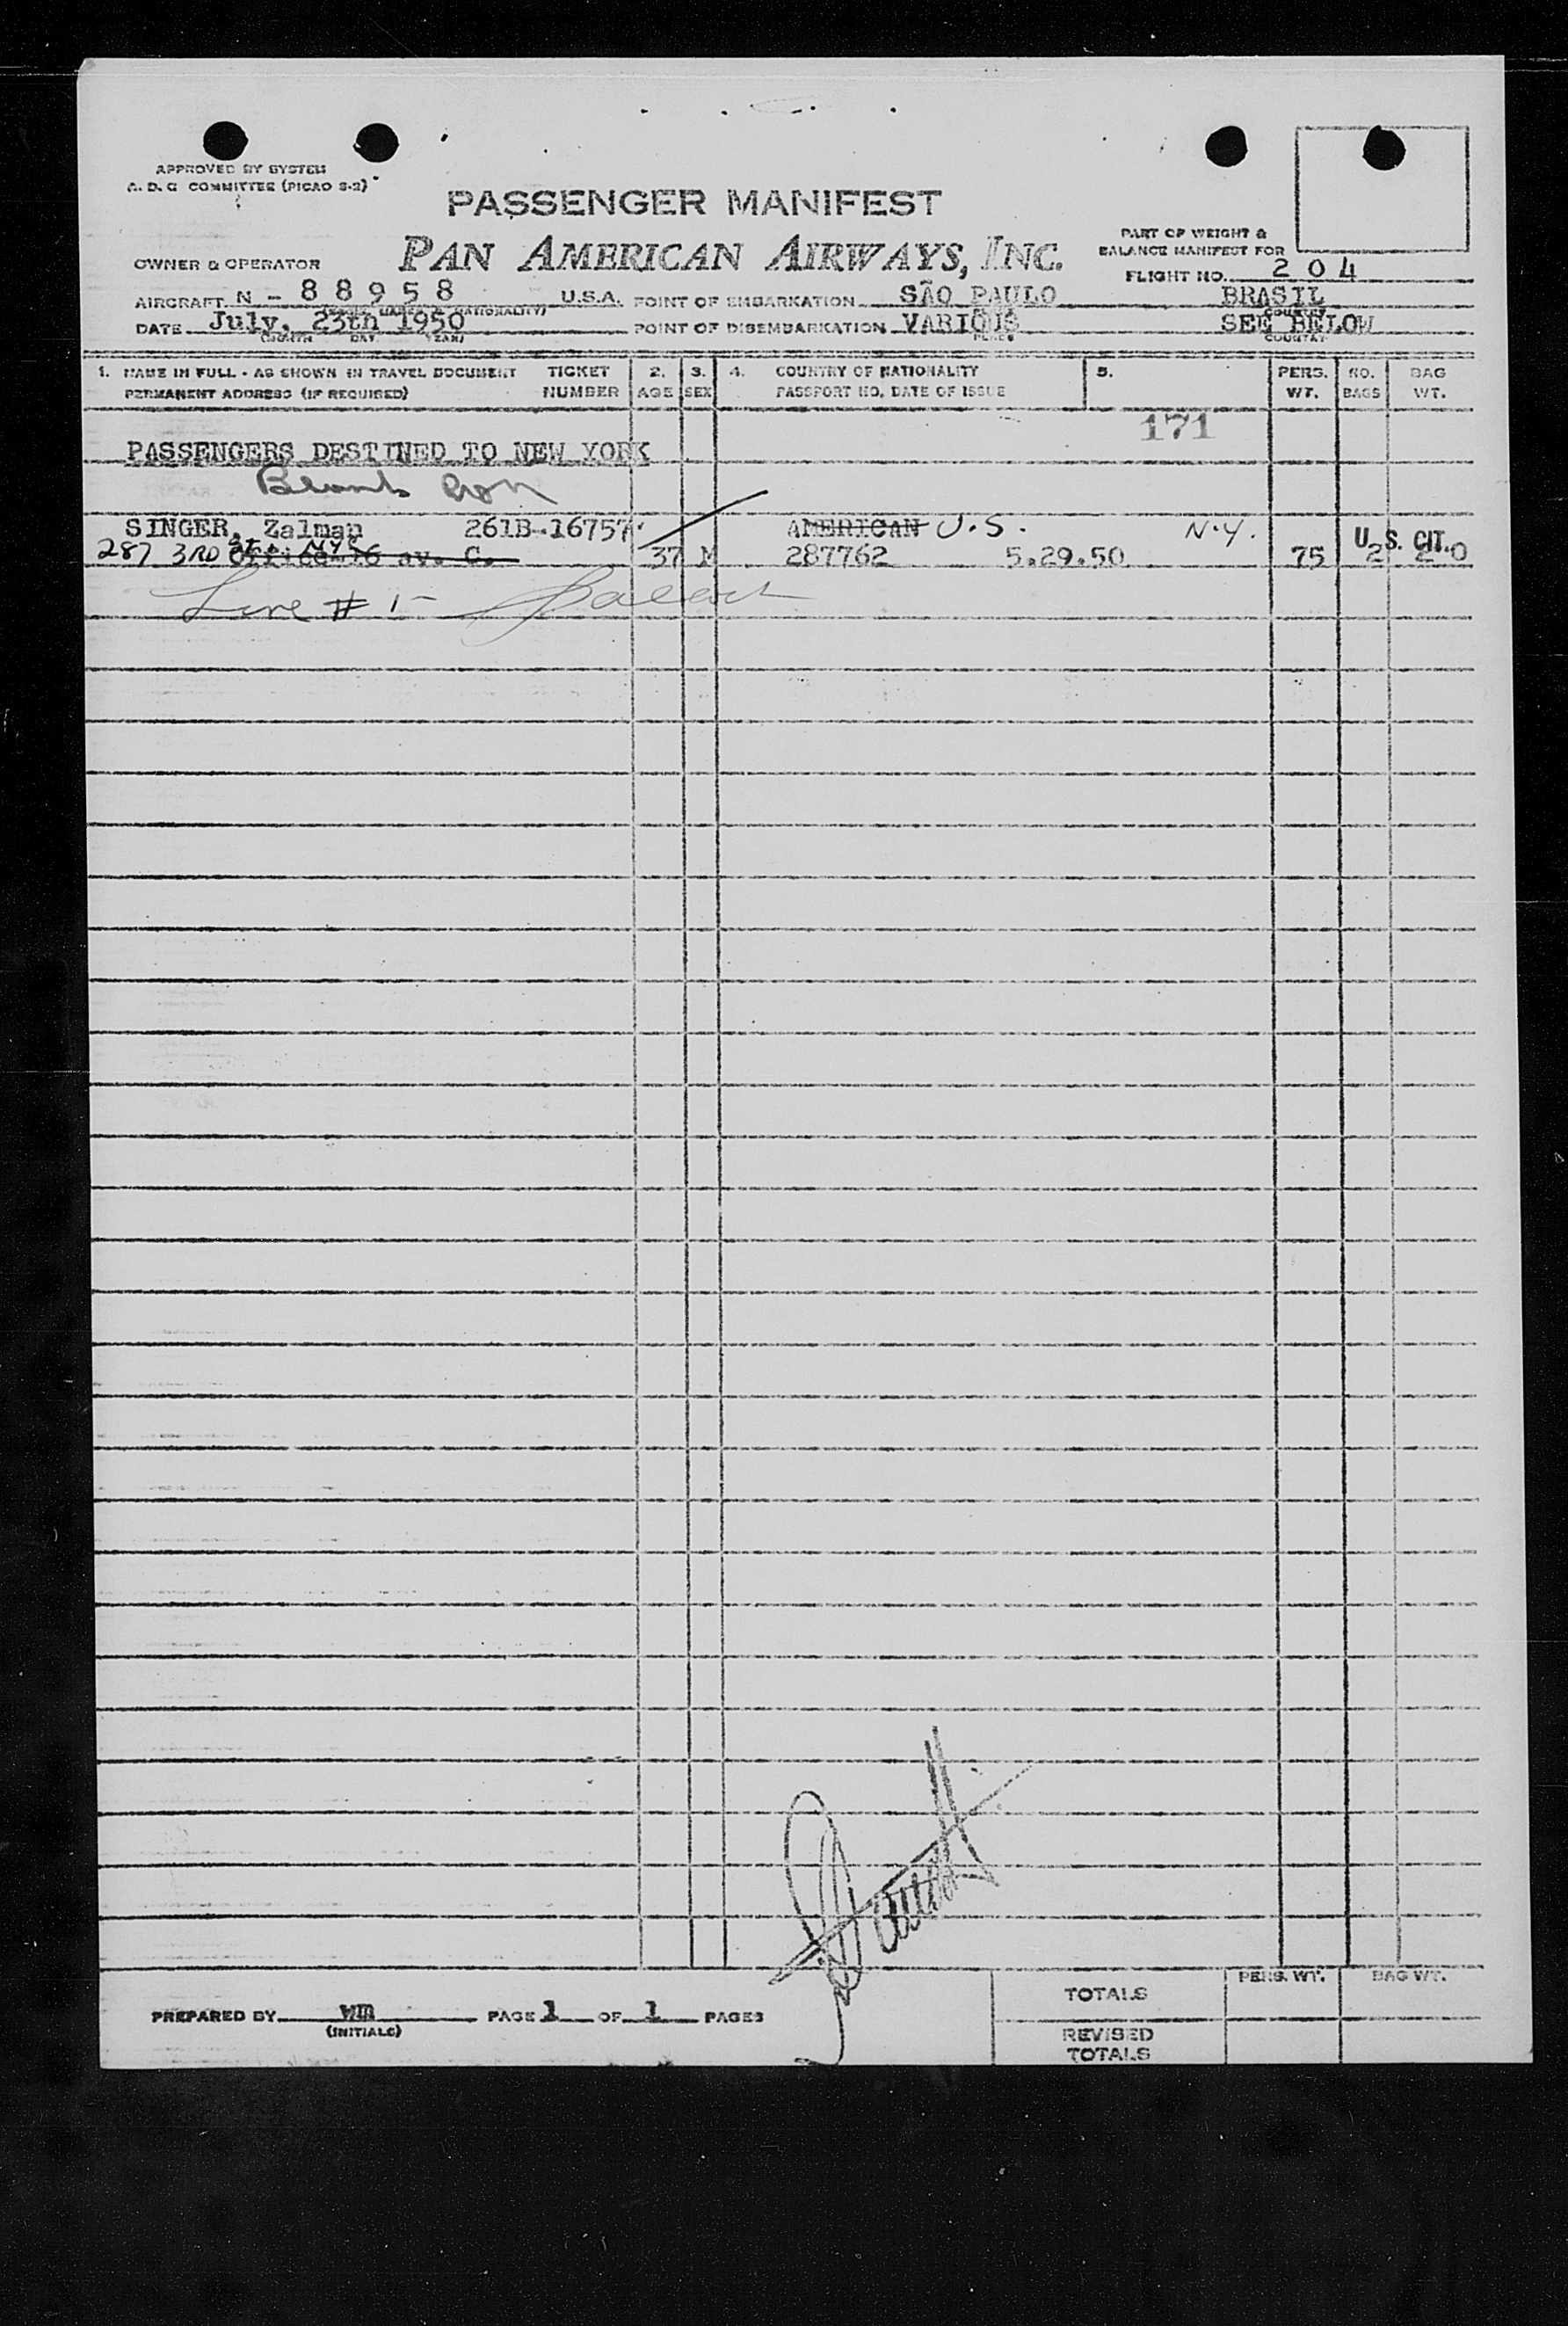 APPROVED BY SYSTEM
A. D. C COMMITTEE (PICAO S-2)
PASSENGER MANIFEST
PAN AMERICAN AIRWAYS, INC.
PART OF WEIGHT &
BALANCE MANIFEST FOR
OWNER & OPERATOR
FLIGHT NO. 204
AIRCRAFT N - 88958 U.S.A. POINT OF EMBARKATION SÃO PAULO BRASIL
DATE July, 23th 1950 POINT OF DISEMBARKATION VARIOUS SEE BELOW
(MONTH DAY YEAR) PLACE COUNTRY
1. NAME IN FULL - AS SHOWN IN TRAVEL DOCUMENT TICKET 2. 3. 4. COUNTRY OF NATIONALITY 5. PERS. NO. BAG
PERMANENT ADDRESS (IF REQUIRED) NUMBER AGE SEX PASSPORT NO. DATE OF ISSUE WT. BAGS WT.
171
PASSENGERS DESTINED TO NEW YORK
SINGER, Zalman 261B-16757 AMERICAN U.S. N.Y. U.S. CIT.
287 3RD ST. NYC av. C. 37 M 287762 5.29.50 75 2 20
Line # 1-
PREPARED BY wm PAGE 1 OF 1 PAGES
(INITIALS)
TOTALS
PERS. WT. BAG WT.
REVISED
TOTALS